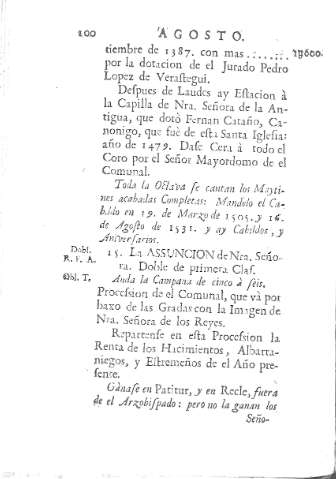 200 AGOSTO.
tiembre de 1387. con mas ........ 19600.
por la dotacion de el Jurado Pedro
Lopez de Verastegui.
Despues de Laudes ay Estacion à
la Capilla de Nra. Señora de la An-
tigua, que dotò Fernan Cataño, Ca-
nonigo, que fuè de esta Santa Iglesia:
año de 1479. Dase Cera à todo el
Coro por el Señor Mayordomo de el
Comunal.
Toda la Octava se cantan los Mayti-
nes acabadas Completas: Mandolo el Ca-
bildo en 19. de Marzo de 1505. y 16.
de Agosto de 1531. y ay Cabildos, y
Aniversarios.
Dobl. 15. La ASSUNCION de Nra. Seño-
R. F. A. ra. Doble de primera Clas.
Obl. T. Anda la Campana de cinco à seis.
Procession de el Comunal, que và por
baxo de las Gradas con la Imagen de
Nra. Señora de los Reyes.
Repartense en esta Procession la
Renta de los Hacimientos, Albarra-
niegos, y Estremeños de el Año pre-
sente.
Gànase en Patitur, y en Recle, fuera
de el Arzobispado: pero no la ganan los
Seño-